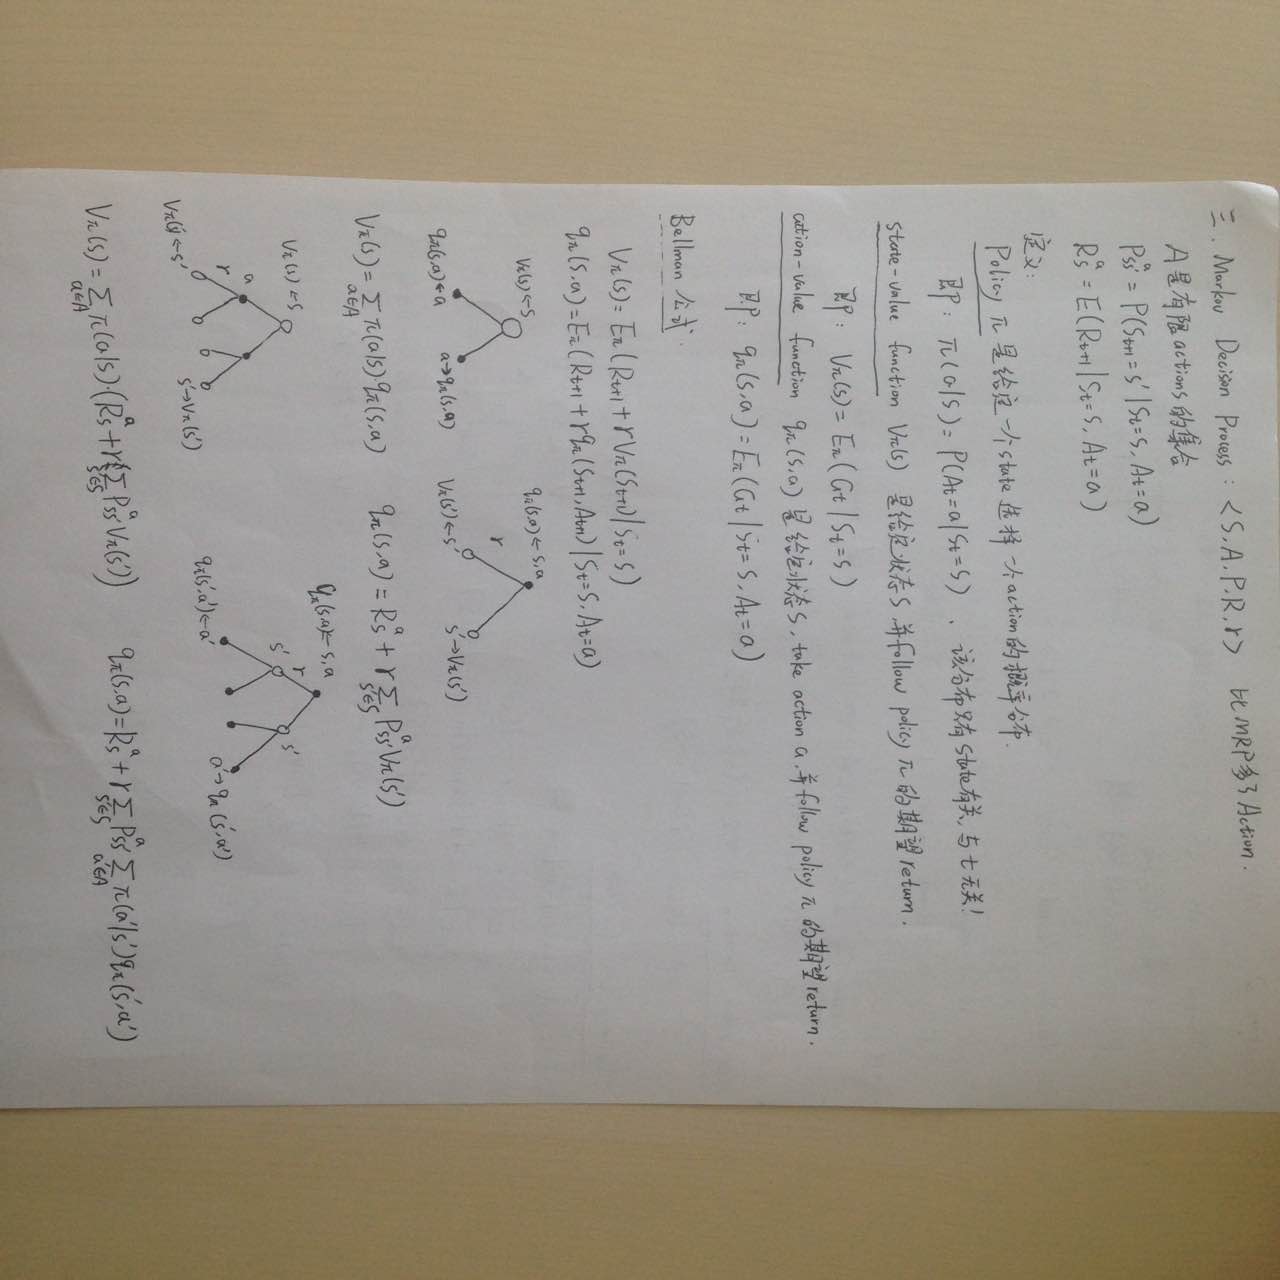 三. Markov Decision Process: <S,A,P,R,γ> 比MRP多了Action.
A是有限actions的集合
Pss'^a = P(St+1=s'|St=s, At=a)
Rs^a = E(Rt+1|St=s, At=a)
定义:
Policy π 是给定一个state 选择一个action的概率分布.
即: π(a|s) = P(At=a|St=s). 该分布只有state有关,与t无关!
state-value function Vπ(s) 是给定状态S,并follow policy π 的期望return.
即: Vπ(s) = Eπ(Gt|St=s)
action-value function qπ(s,a) 是给定状态S, take action a,并follow policy π 的期望return.
即: qπ(s,a) = Eπ(Gt|St=s, At=a)
Bellman 公式.
Vπ(s) = Eπ(Rt+1+γVπ(St+1)|St=s)
qπ(s,a) = Eπ(Rt+1+γqπ(St+1,At+1)|St=s, At=a)
Vπ(s)←s
qπ(s,a)←a a→qπ(s,a)
qπ(s,a)←s,a
r
Vπ(s')←s' s'→Vπ(s')
Vπ(s) = Σa∈A π(a|s)·qπ(s,a)
qπ(s,a) = Rs^a + γ Σs'∈S Pss'^a Vπ(s')
Vπ(s)←s
a
r
Vπ(s')←s' s'→Vπ(s')
qπ(s,a)←s,a
r
s' s'
qπ(s',a')←a' a'→qπ(s',a')
Vπ(s) = Σa∈A π(a|s)·(Rs^a + γ Σs'∈S Pss'^a Vπ(s'))
qπ(s,a) = Rs^a + γ Σs'∈S Pss'^a Σa'∈A π(a'|s')qπ(s',a')